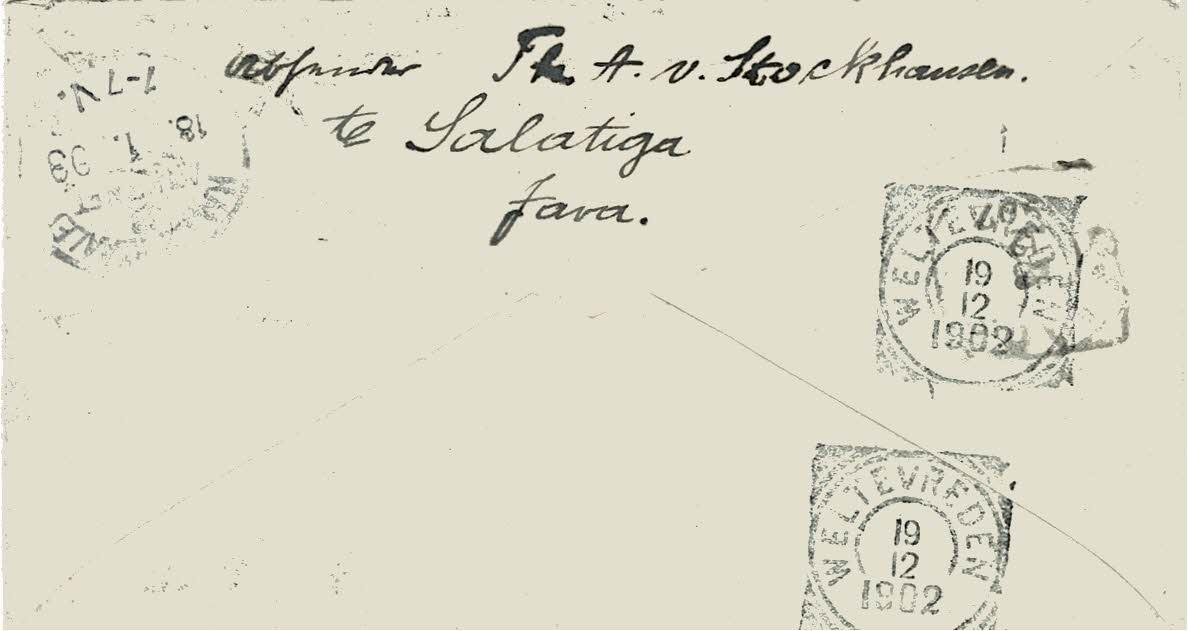 Absender Th. A. v. Stockhausen.
te Salatiga
Java.
7-7 V.
18. 1. 03
WELTEVREDEN
19
12
1902
WELTEVREDEN
19
12
1902